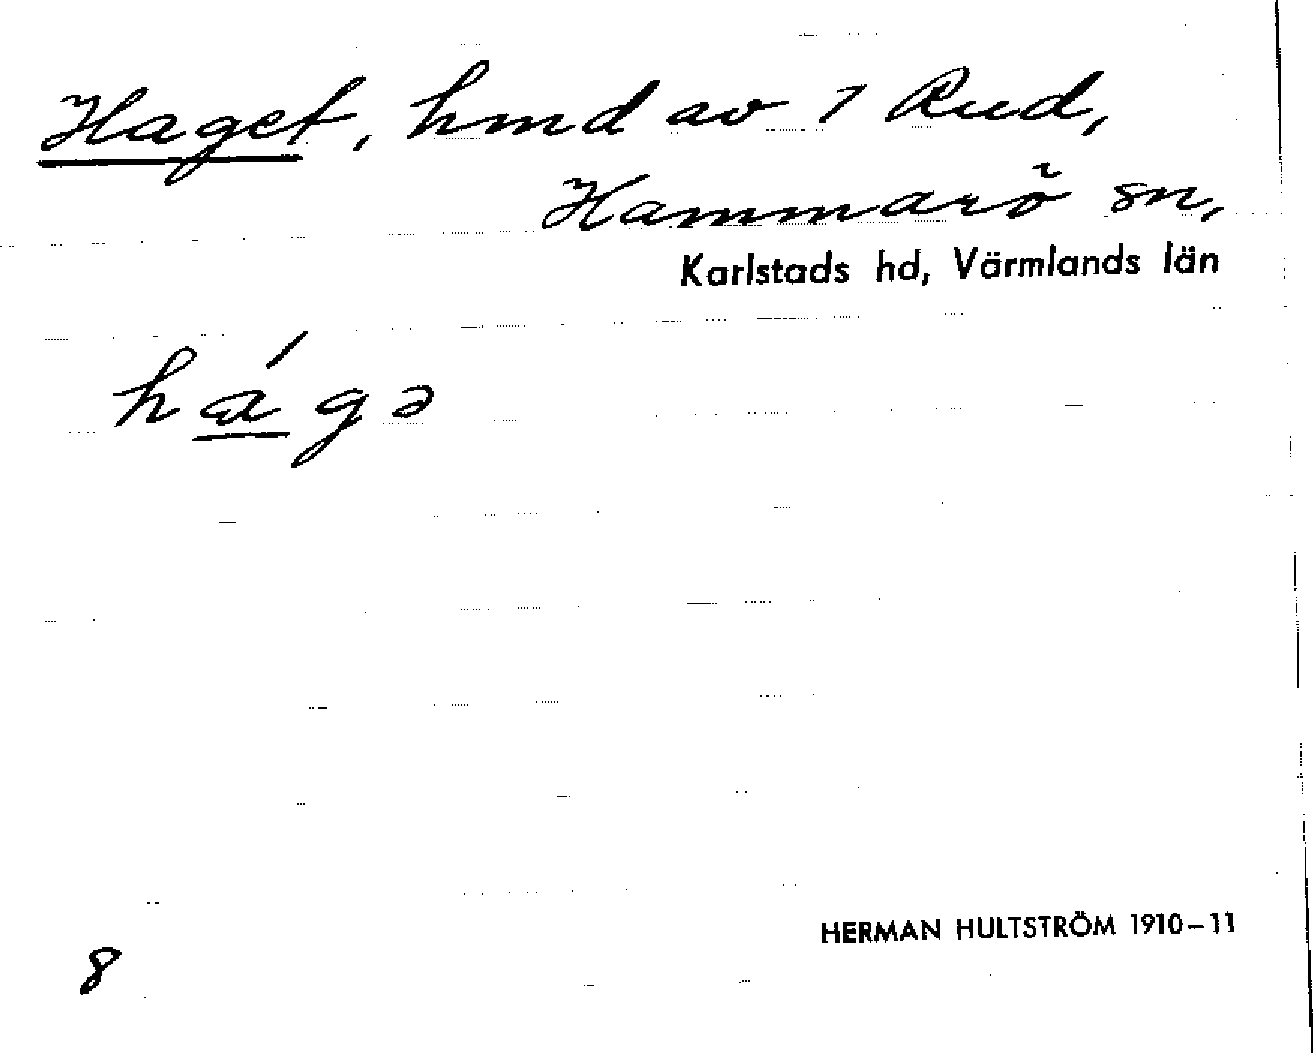 Haget, hmd av 1 Rud,
Hammarö sn,
Karlstads hd, Värmlands län
há̱gə
8
HERMAN HULTSTRÖM 1910–11